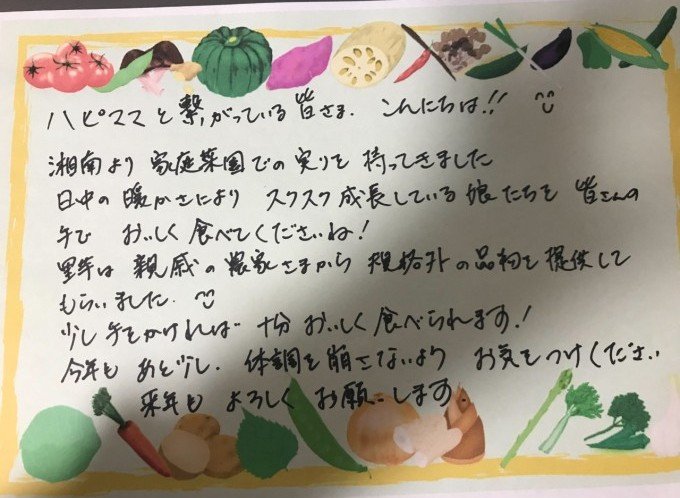 ハピママと繋がっている皆さま. こんにちは!!
湘南より 家庭菜園での実りを 持ってきました
日中の暖かさにより スクスク成長している娘たちを 皆さんの
手で おいしく食べてくださいね!
里芋は 親戚の農家さまから 規格外の品物を提供して
もらいました.
少し手をかければ 十分おいしく食べられます!
今年も あと少し. 体調を崩さないよう お気をつけください
来年も よろしく お願いします.